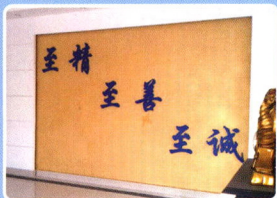 至精
至善
至诚